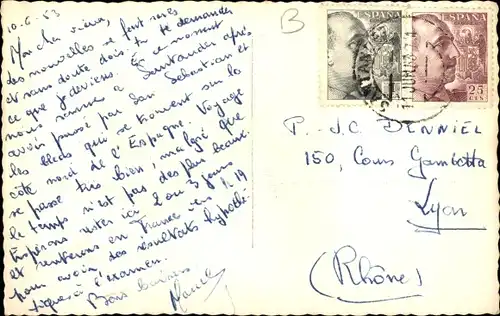 10-6-53
Mon cher vieux,
des nouvelles se font rares
et sans doute dois-tu te demander
ce que je deviens. En ce moment
nous sommes à Santander après
avoir passé par San Sebastian et
les bleds qui se trouvent sur la
côte nord de l'Espagne. Voyage
se passe très bien, malgré que
le temps n'est pas des plus beaux.
Espérons rester ici 2 ou 3 jours
et rentrerons en France vers le 19
pour avoir des résultats hypothé-
tiques à l'examen.
Bons baisers
B
ESPAÑA
ESPAÑA
25
CTS
P. J.C. DENNIEL
150, Cours Gambetta
Lyon
(Rhône)